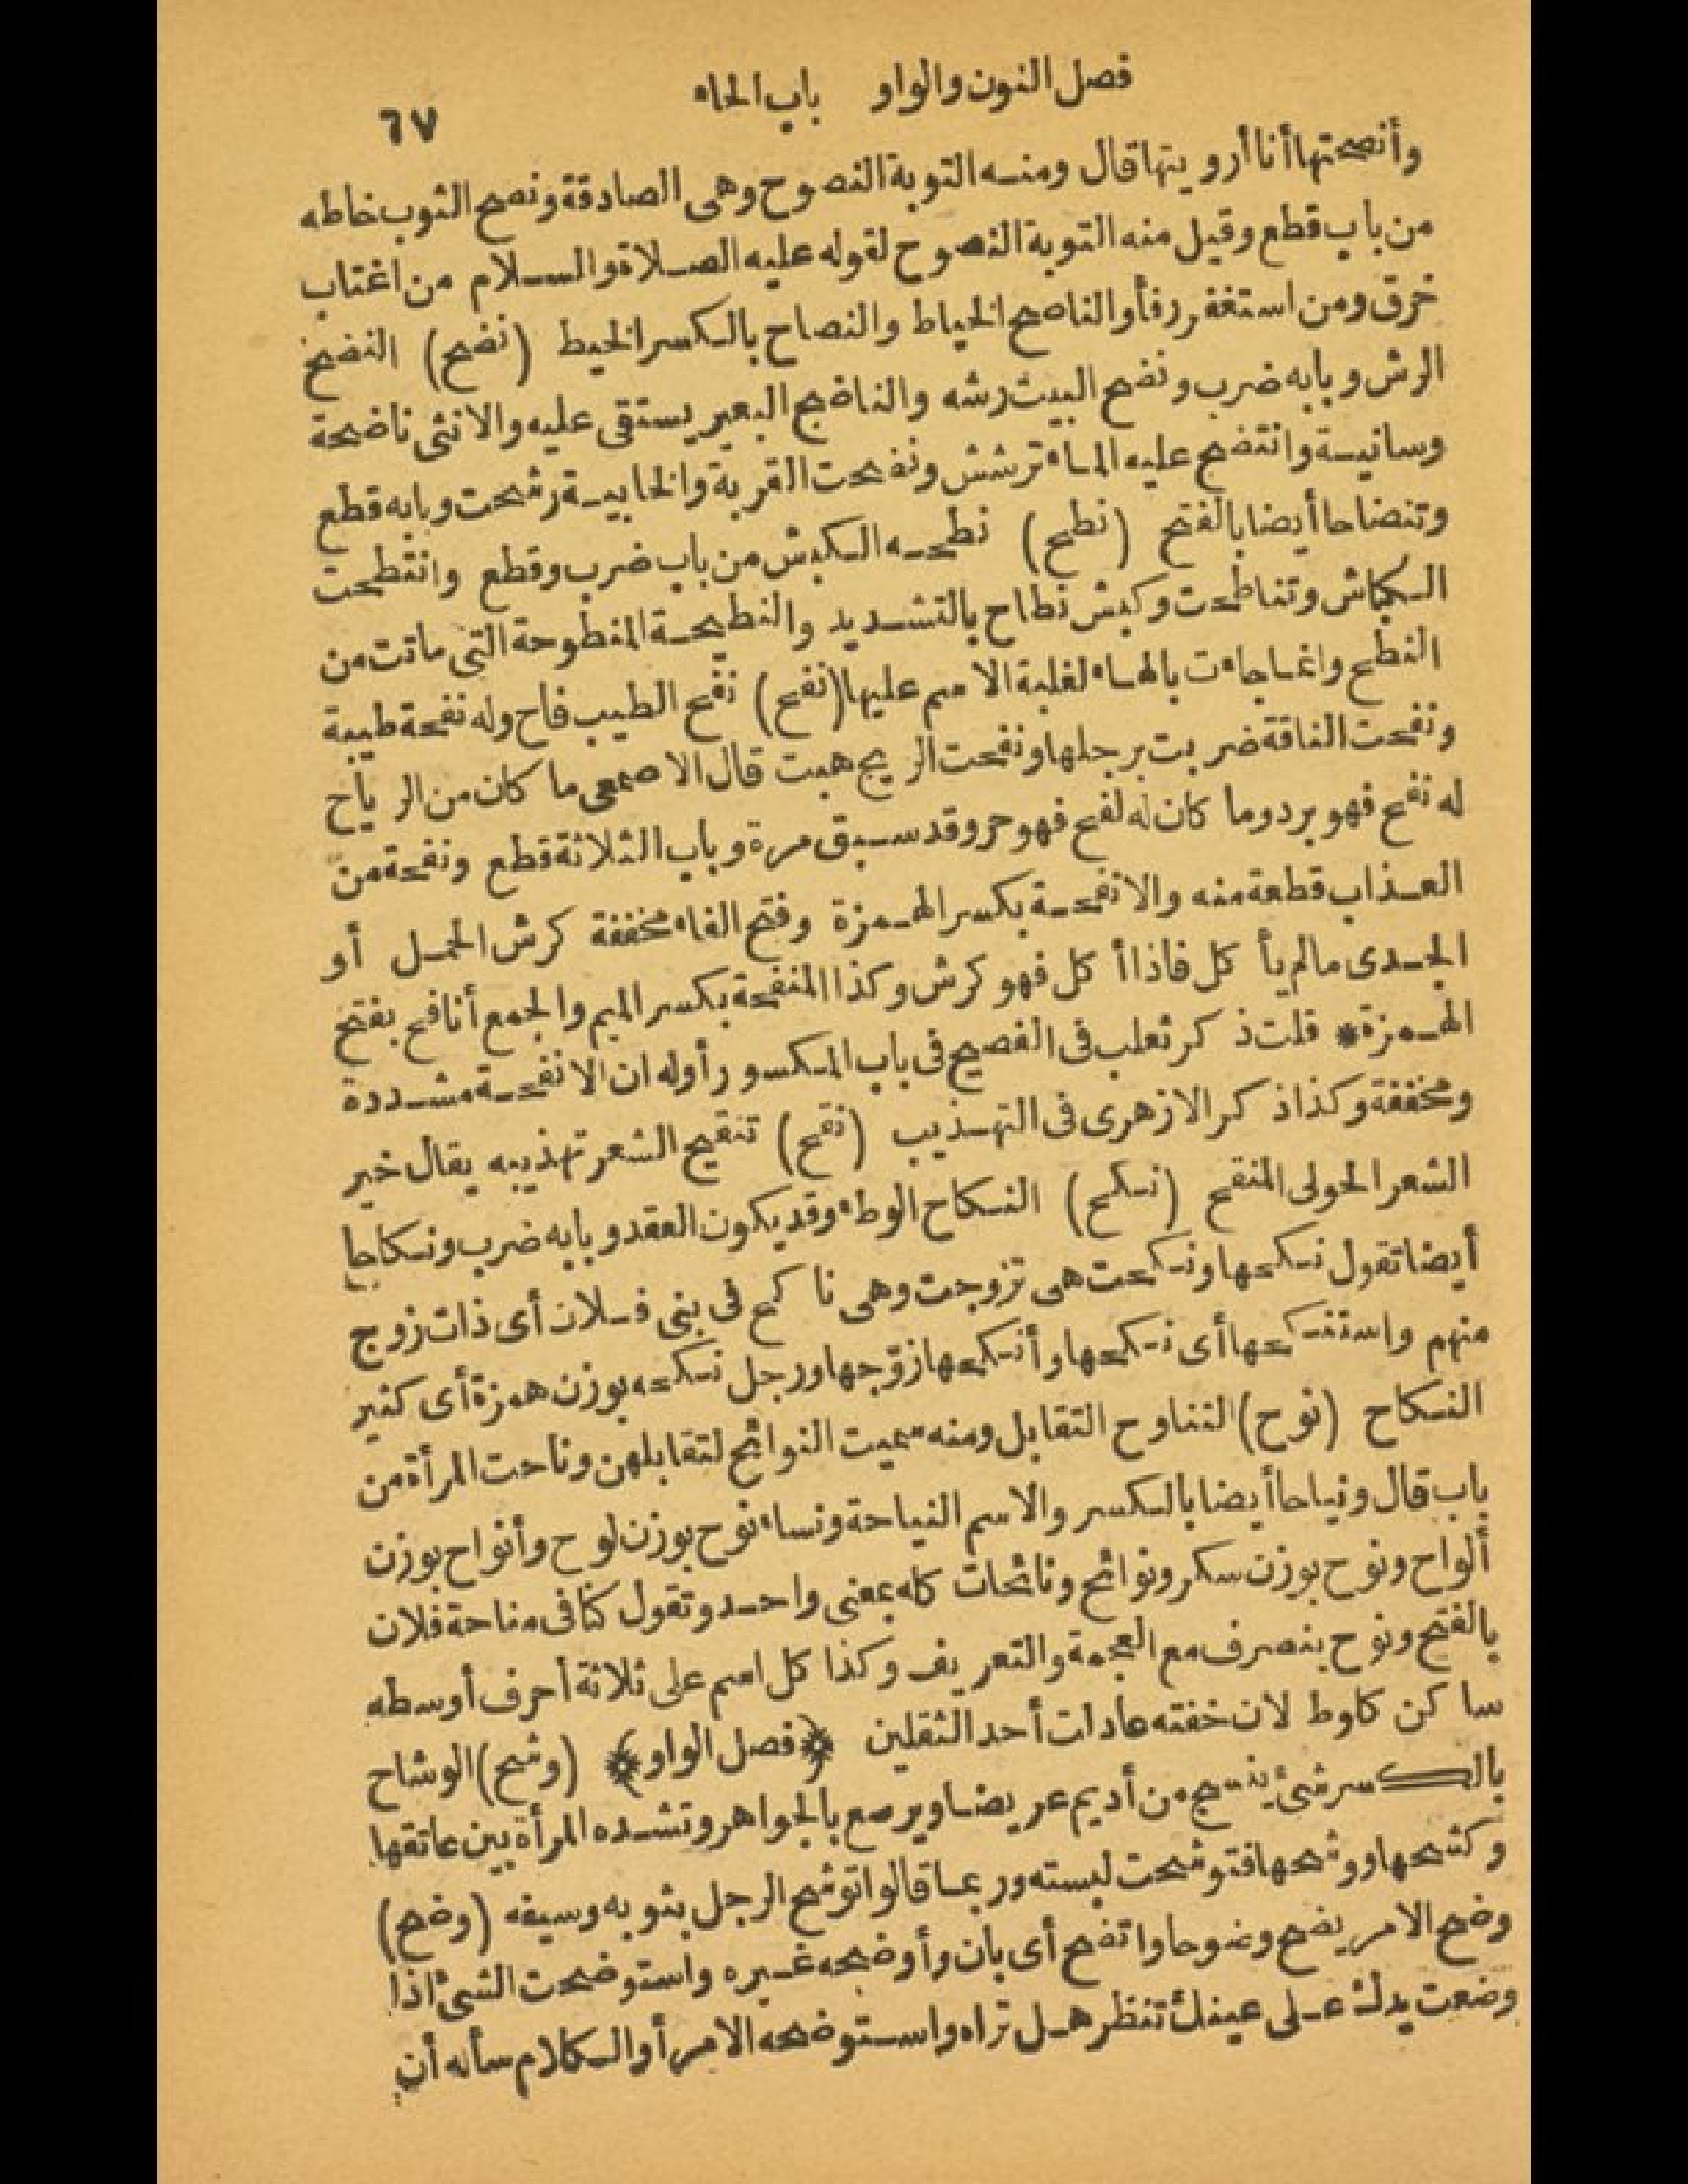 فصل النون والواو باب الحاء
٦٧
وأنصحتها أنا أرويتها قال ومنه التوبة النصوح وهى الصادقة ونصح الثوب خاطه
من باب قطع وقيل منه التوبة النصوح لقوله عليه الصلاة والسلام من اغتاب
خرق ومن استغفر رفأ والناصح الخياط والنصاح بالكسر الخيط (نضح) النضح
الرش وبابه ضرب ونضح البيت رشه والناضح البعير يستقى عليه والانثى ناضحة
وسانية وانتضح عليه الماء ترشش ونضحت القربة والخابية رشحت وبابه قطع
وتنضاحا أيضا بالفتح (نطح) نطحه الكبش من باب ضرب وقطع وانتطحت
الكباش وتناطحت وكبش نطاح بالتشديد والنطيحة المنطوحة التى ماتت من
النطح وانما جاءت بالهاء لغلبة الاسم عليها (نفح) نفح الطيب فاح وله نفحة طيبة
ونفحت الناقة ضربت برجلها ونفحت الريح هبت قال الاصمعى ما كان من الرياح
له نفح فهو برد وما كان له لفح فهو حر وقد سبق مرة وباب الثلاثة قطع ونفحة من
العذاب قطعة منه والانفحة بكسر الهمزة وفتح الفاء مخففة كرش الحمل أو
الجدى مالم يأكل فاذا أكل فهو كرش وكذا المنفحة بكسر الميم والجمع أنافح بفتح
الهمزة * قلت ذكر ثعلب فى الفصيح فى باب المكسور أوله ان الانفحة مشددة
ومخففة وكذا ذكر الازهرى فى التهذيب (نقح) تنقيح الشعر تهذيبه يقال خير
الشعر الحولى المنقح (نكح) النكاح الوطء وقد يكون العقد وبابه ضرب ونكاحا
أيضا تقول نكحها ونكحت هى تزوجت وهى ناكح فى بنى فلان أى ذات زوج
منهم واستنكحها أى نكحها وأنكحها زوّجها ورجل نكحه بوزن همزة أى كثير
النكاح (نوح) التناوح التقابل ومنه سميت النوائح لتقابلهن وناحت المرأة من
باب قال ونياحا أيضا بالكسر والاسم النياحة ونساء نوح بوزن لوح وأنواح بوزن
ألواح ونوح بوزن سكر ونوائح ونائحات كله بمعنى واحد وتقول كنا فى مناحة فلان
بالفتح ونوح ينصرف مع العجمة والتعريف وكذا كل اسم على ثلاثة أحرف أوسطه
ساكن كلوط لان خفته عادلت أحد الثقلين ﴿فصل الواو﴾ (وشح) الوشاح
بالكسر شئ ينسج من أديم عريضا ويرصع بالجواهر وتشده المرأة بين عاتقها
وكشحها ووشحها فتوشحت لبسته وربما قالوا توشح الرجل بثوبه وسيفه (وضح)
وضح الامر يضح وضوحا واتضح أى بان وأوضحه غيره واستوضحت الشئ اذا
وضعت يدك على عينك تنظر هل تراه واستوضحه الامر أو الكلام سأله أن